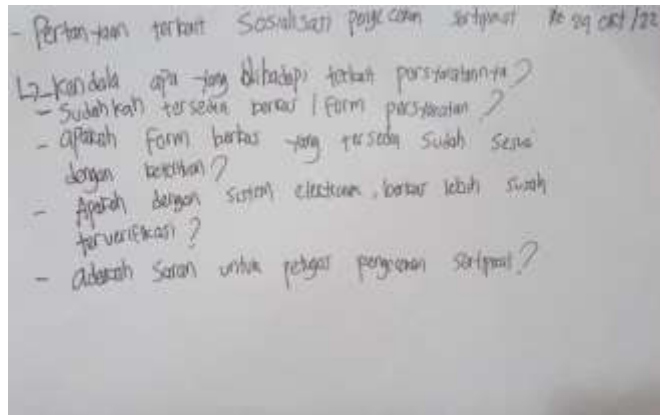 - Pertanyaan terkait Sosialisasi pengecekan sertipikat 29 okt /22
↳ Kendala apa yang dihadapi terkait persyaratannya ?
- Sudahkah tersedia berkas / form persyaratan ?
- apakah form berkas yang tersedia sudah sesuai
dengan ?
- Apakah dengan sistem , berkas lebih
terverifikasi ?
- adakah saran untuk petugas pengecekan sertipikat ?